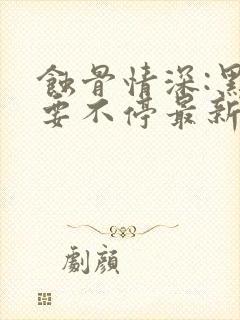 蝕骨情深:黑
要不停最新
劇顏